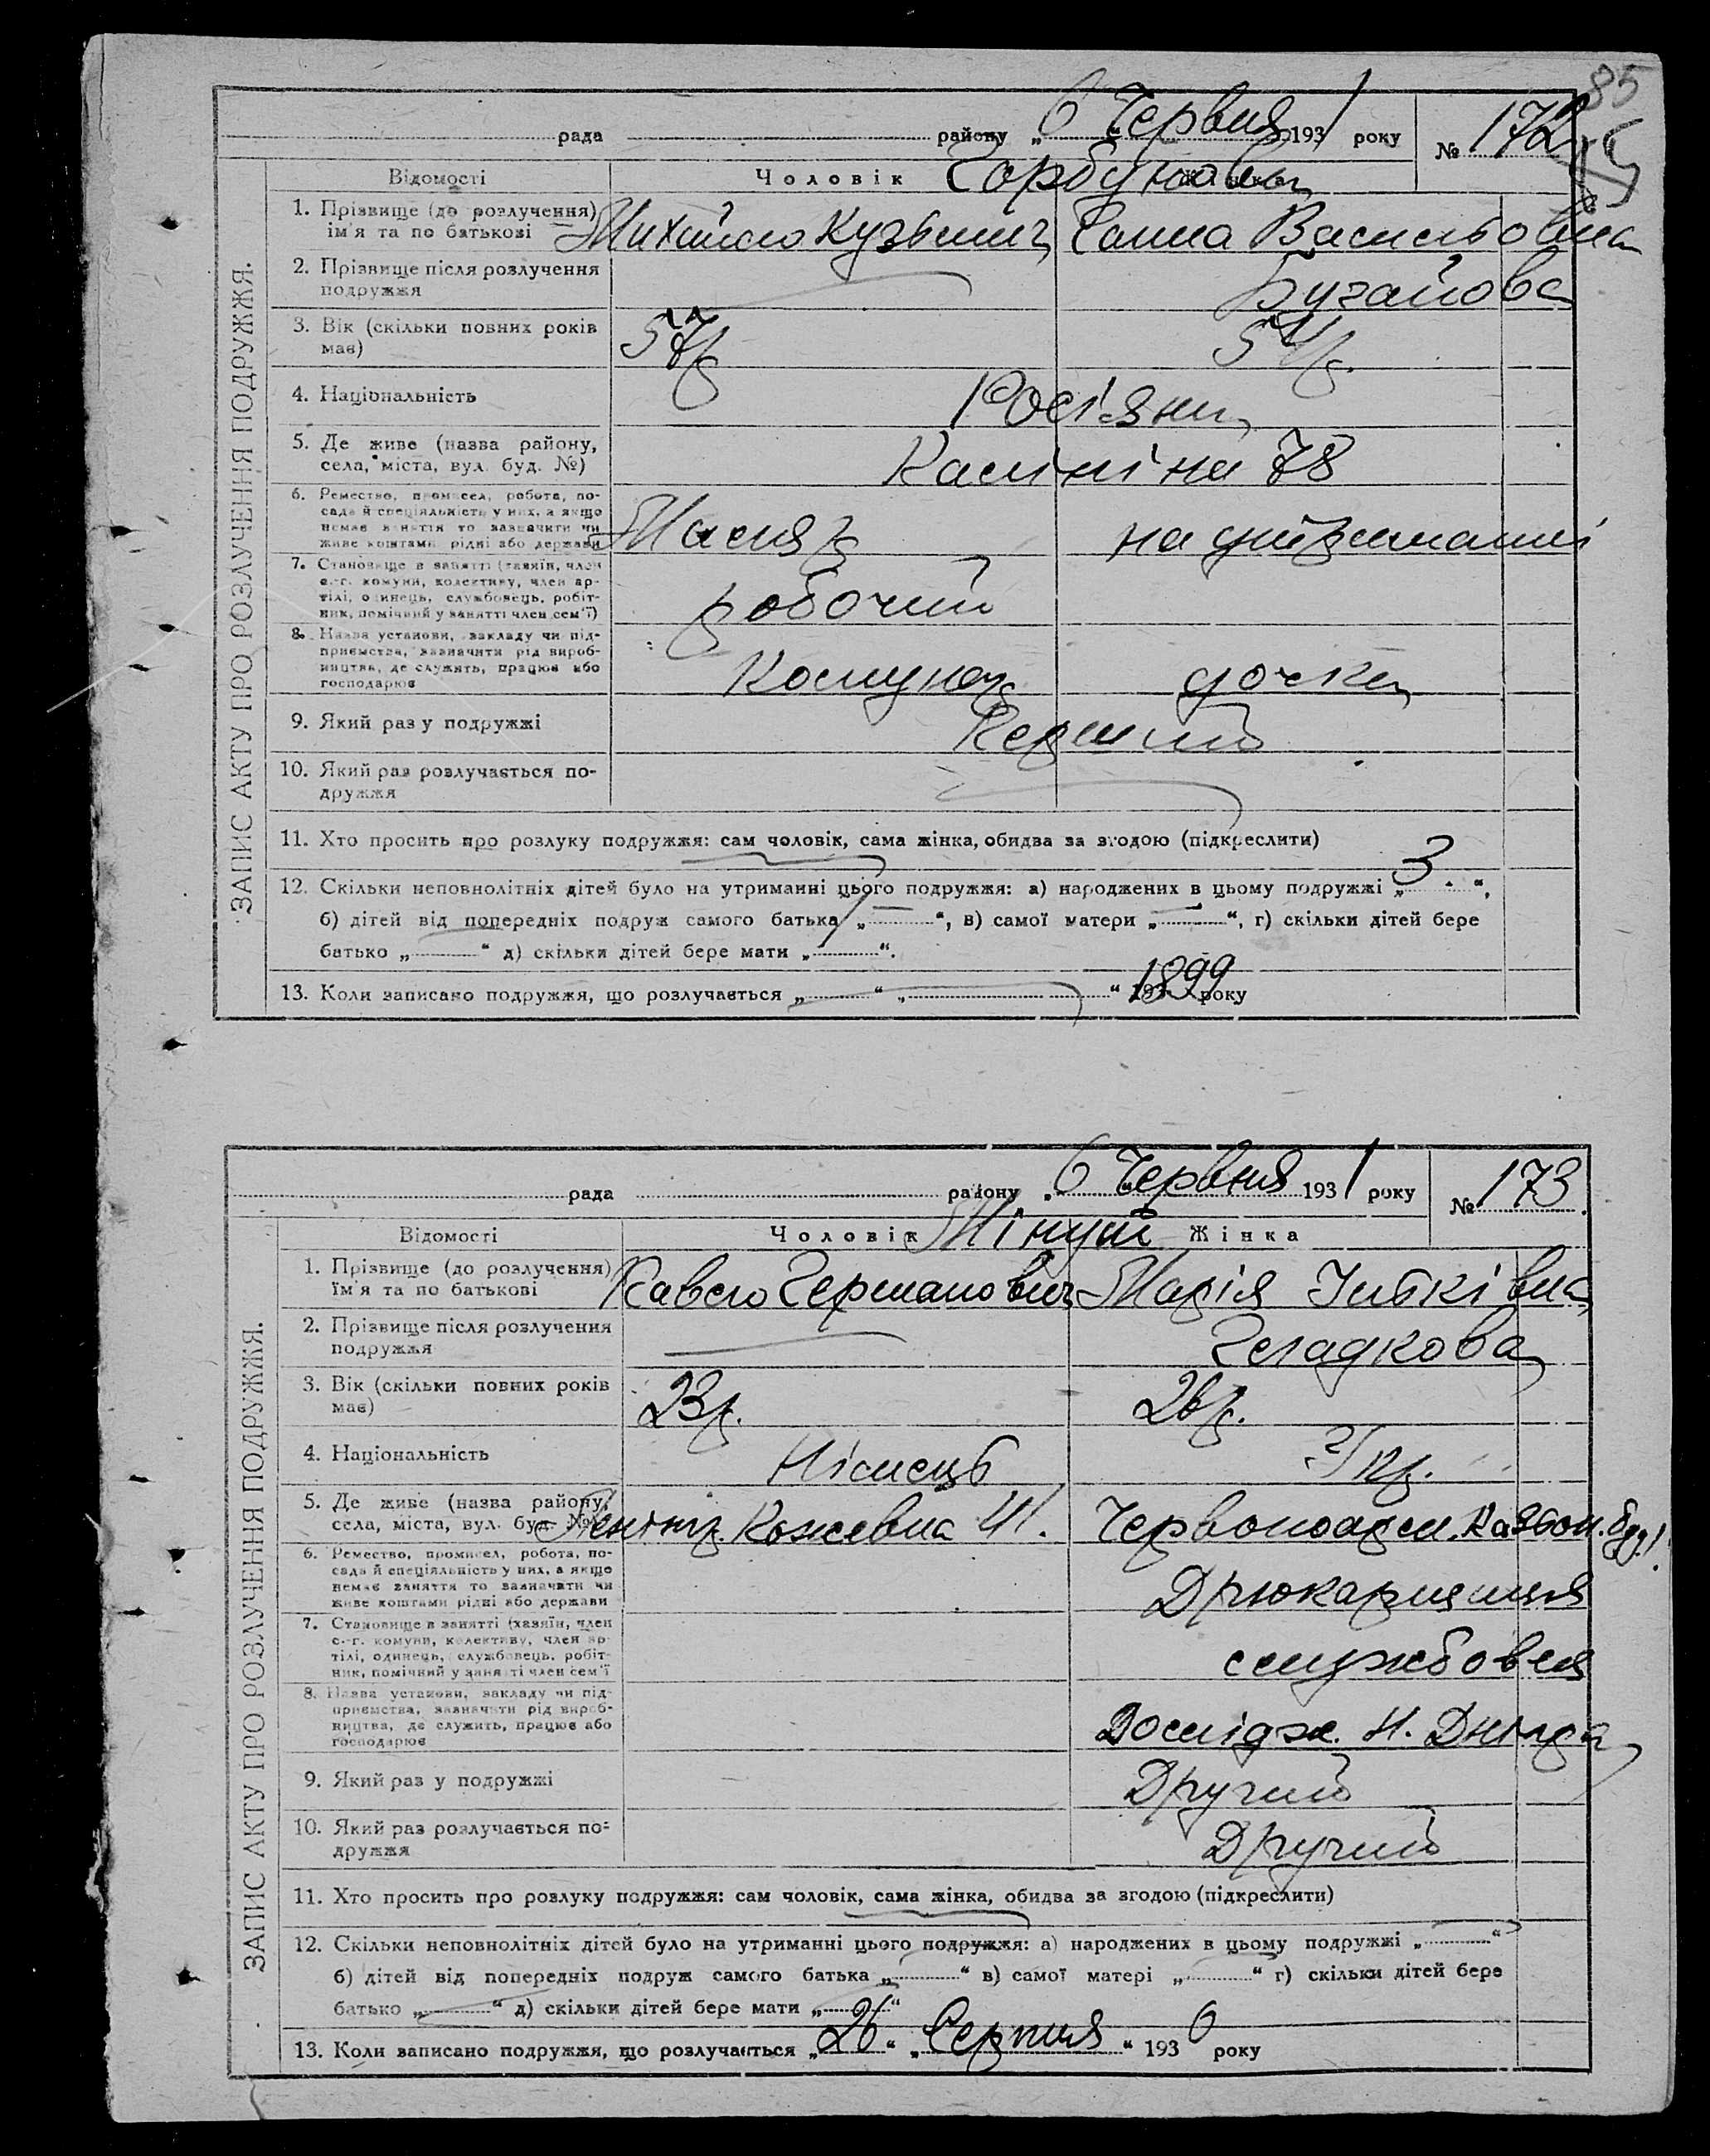 85
рада району „6“ Червня 1931 року № 172
ЗАПИС АКТУ ПРО РОЗЛУЧЕННЯ ПОДРУЖЖЯ.
Відомості Чоловік Жінка
Горбунови
1. Прізвище (до розлучення) ім'я та по батькові Михайло Кузьмич Ганна Васильовна
2. Прізвище після розлучення подружжя — Бугайова
3. Вік (скільки повних років має) 57 р 51 р.
4. Національність Росіяни
5. Де живе (назва району, села, міста, вул. буд. №) Калініна 78
6. Ремество, промисел, робота, по-
сада й спеціяльність у них, а якщо
немає заняття то зазначити чи
живе коштами рідні або держави Маляр на утриманні
7. Становище в занятті (хазяїн, член
с.-г. комуни, колективу, член ар-
тілі, одинець, службовець, робіт-
ник, помічний у занятті член сем'ї) робочий
8. Назва установи, закладу чи під-
приємства, зазначити рід вироб-
ництва, де служить, працює або
господарює дочка
9. Який раз у подружжі Перший
10. Який раз розлучається по-
дружжя —
11. Хто просить про розлуку подружжя: сам чоловік, сама жінка, обидва за згодою (підкреслити)
12. Скільки неповнолітніх дітей було на утриманні цього подружжя: а) народжених в цьому подружжі „3“,
б) дітей від попередніх подруж самого батька „—“, в) самої матери „—“, г) скільки дітей бере
батько „—“ д) скільки дітей бере мати „“.
13. Коли записано подружжя, що розлучається „“ „“ 1899 року
рада району „6“ Червня 1931 року № 173
ЗАПИС АКТУ ПРО РОЗЛУЧЕННЯ ПОДРУЖЖЯ.
Відомості Чоловік Жінка
1. Прізвище (до розлучення) ім'я та по батькові Павло Германович Марія
2. Прізвище після розлучення подружжя — Гладкова
3. Вік (скільки повних років має) 23 р. 26 р.
4. Національність Німець Укр.
5. Де живе (назва району, села, міста, вул. буд. №) Кожевна 41.
6. Ремество, промисел, робота, по-
сада й спеціяльність у них, а якщо
немає заняття то зазначати чи
живе коштами рідні або держави Друкарниця
7. Становище в занятті (хазяїн, член
с.-г. комуни, колективу, член ар-
тілі, одинець, службовець, робіт-
ник, помічний у занятті член сем'ї службовця
8. Назва установи, закладу чи під-
приємства, зазначити рід вироб-
ництва, де служить, працює або
господарює Дослідж. Н. Дніпра
9. Який раз у подружжі Другий
10. Який раз розлучається по-
дружжя Другий
11. Хто просить про розлуку подружжя: сам чоловік, сама жінка, обидва за згодою (підкреслити)
12. Скільки неповнолітніх дітей було на утриманні цього подружжя: а) народжених в цьому подружжі „—“
б) дітей від попередніх подруж самого батька „—“ в) самої матері „—“ г) скільки дітей бере
батько „—“ д) скільки дітей бере мати „—“
13. Коли записано подружжя, що розлучається „26“ „Серпня“ 1930 року